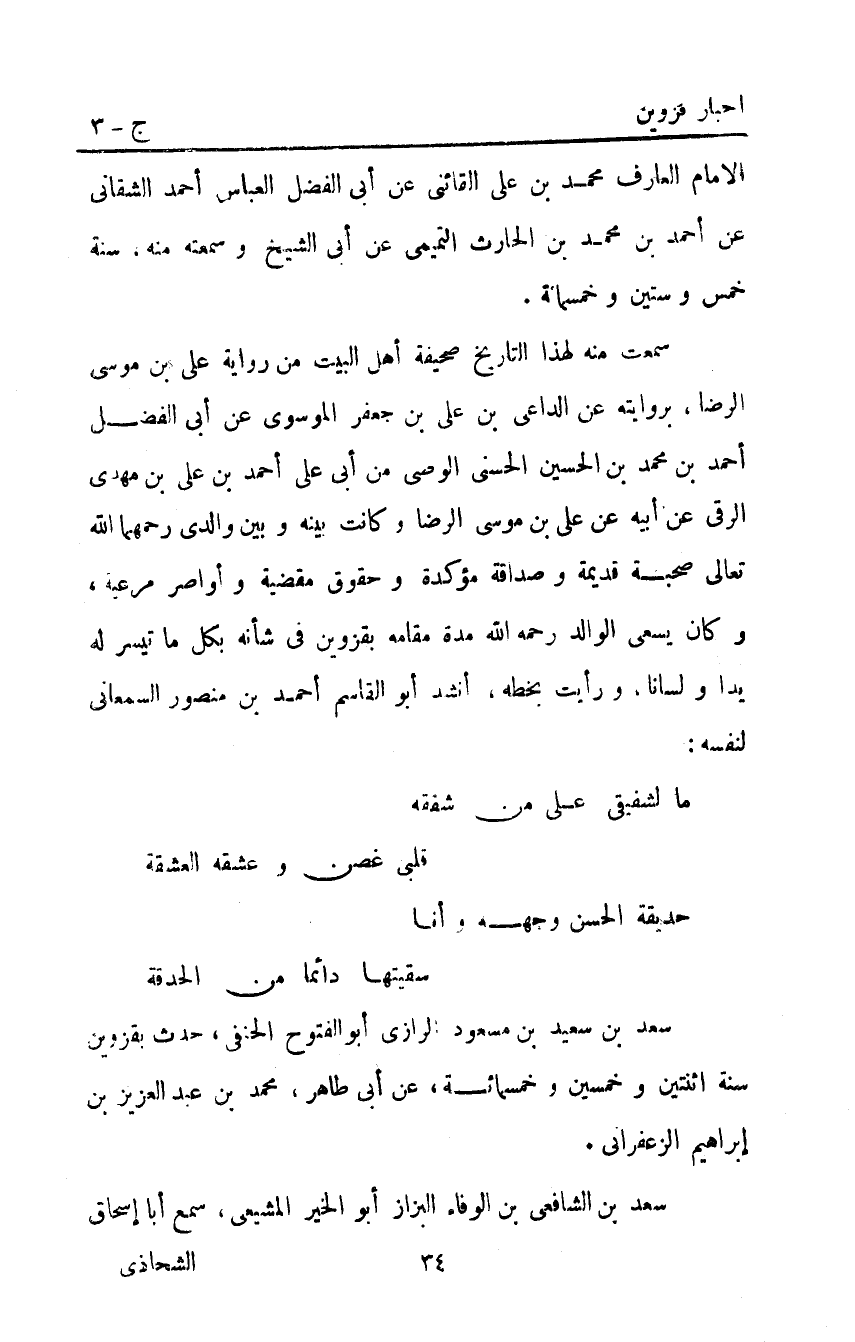 احبار قزوين ج - ٣
الامام العارف محمد بن على القائنى عن أبى الفضل العباس أحمد الشقانى
عن أحمد بن محمد بن الحارث التميمى عن أبى الشيخ و سمعته منه، سنة
خمس و ستين و خمسمائة .
سمعت منه لهذا التاريخ صحيفة أهل البيت من رواية على بن موسى
الرضا، بروايته عن الداعى بن على بن جعفر الموسوى عن أبى الفضل
أحمد بن محمد بن الحسين الحسنى الوصى من أبى على أحمد بن على بن مهدى
الرقى عن أبيه عن على بن موسى الرضا و كانت بينه و بين والدى رحمهما الله
تعالى صحبة قديمة و صداقة مؤكدة و حقوق مقضية و أواصر مرعية،
و كان يسعى الوالد رحمه الله مدة مقامه بقزوين فى شأنه بكل ما تيسر له
يدا و لسانا، و رأيت بخطه، أنشد أبو القاسم أحمد بن منصور السمعانى
لنفسه :
ما لشفيقى على من شفقه
قلبى غصن و عشقه العشقة
حديقة الحسن وجهه و أنا
سقيتها دائما من الحدقة
سعد بن سعيد بن مسعود الرازى أبو الفتوح الحنفى، حدث بقزوين
سنة اثنتين و خمسين و خمسمائة، عن أبى طاهر، محمد بن عبد العزيز بن
إبراهيم الزعفرانى .
سعد بن الشافعى بن الوفاء البزاز أبو الخير المشيعى، سمع أبا إسحاق
٣٤ الشحاذى